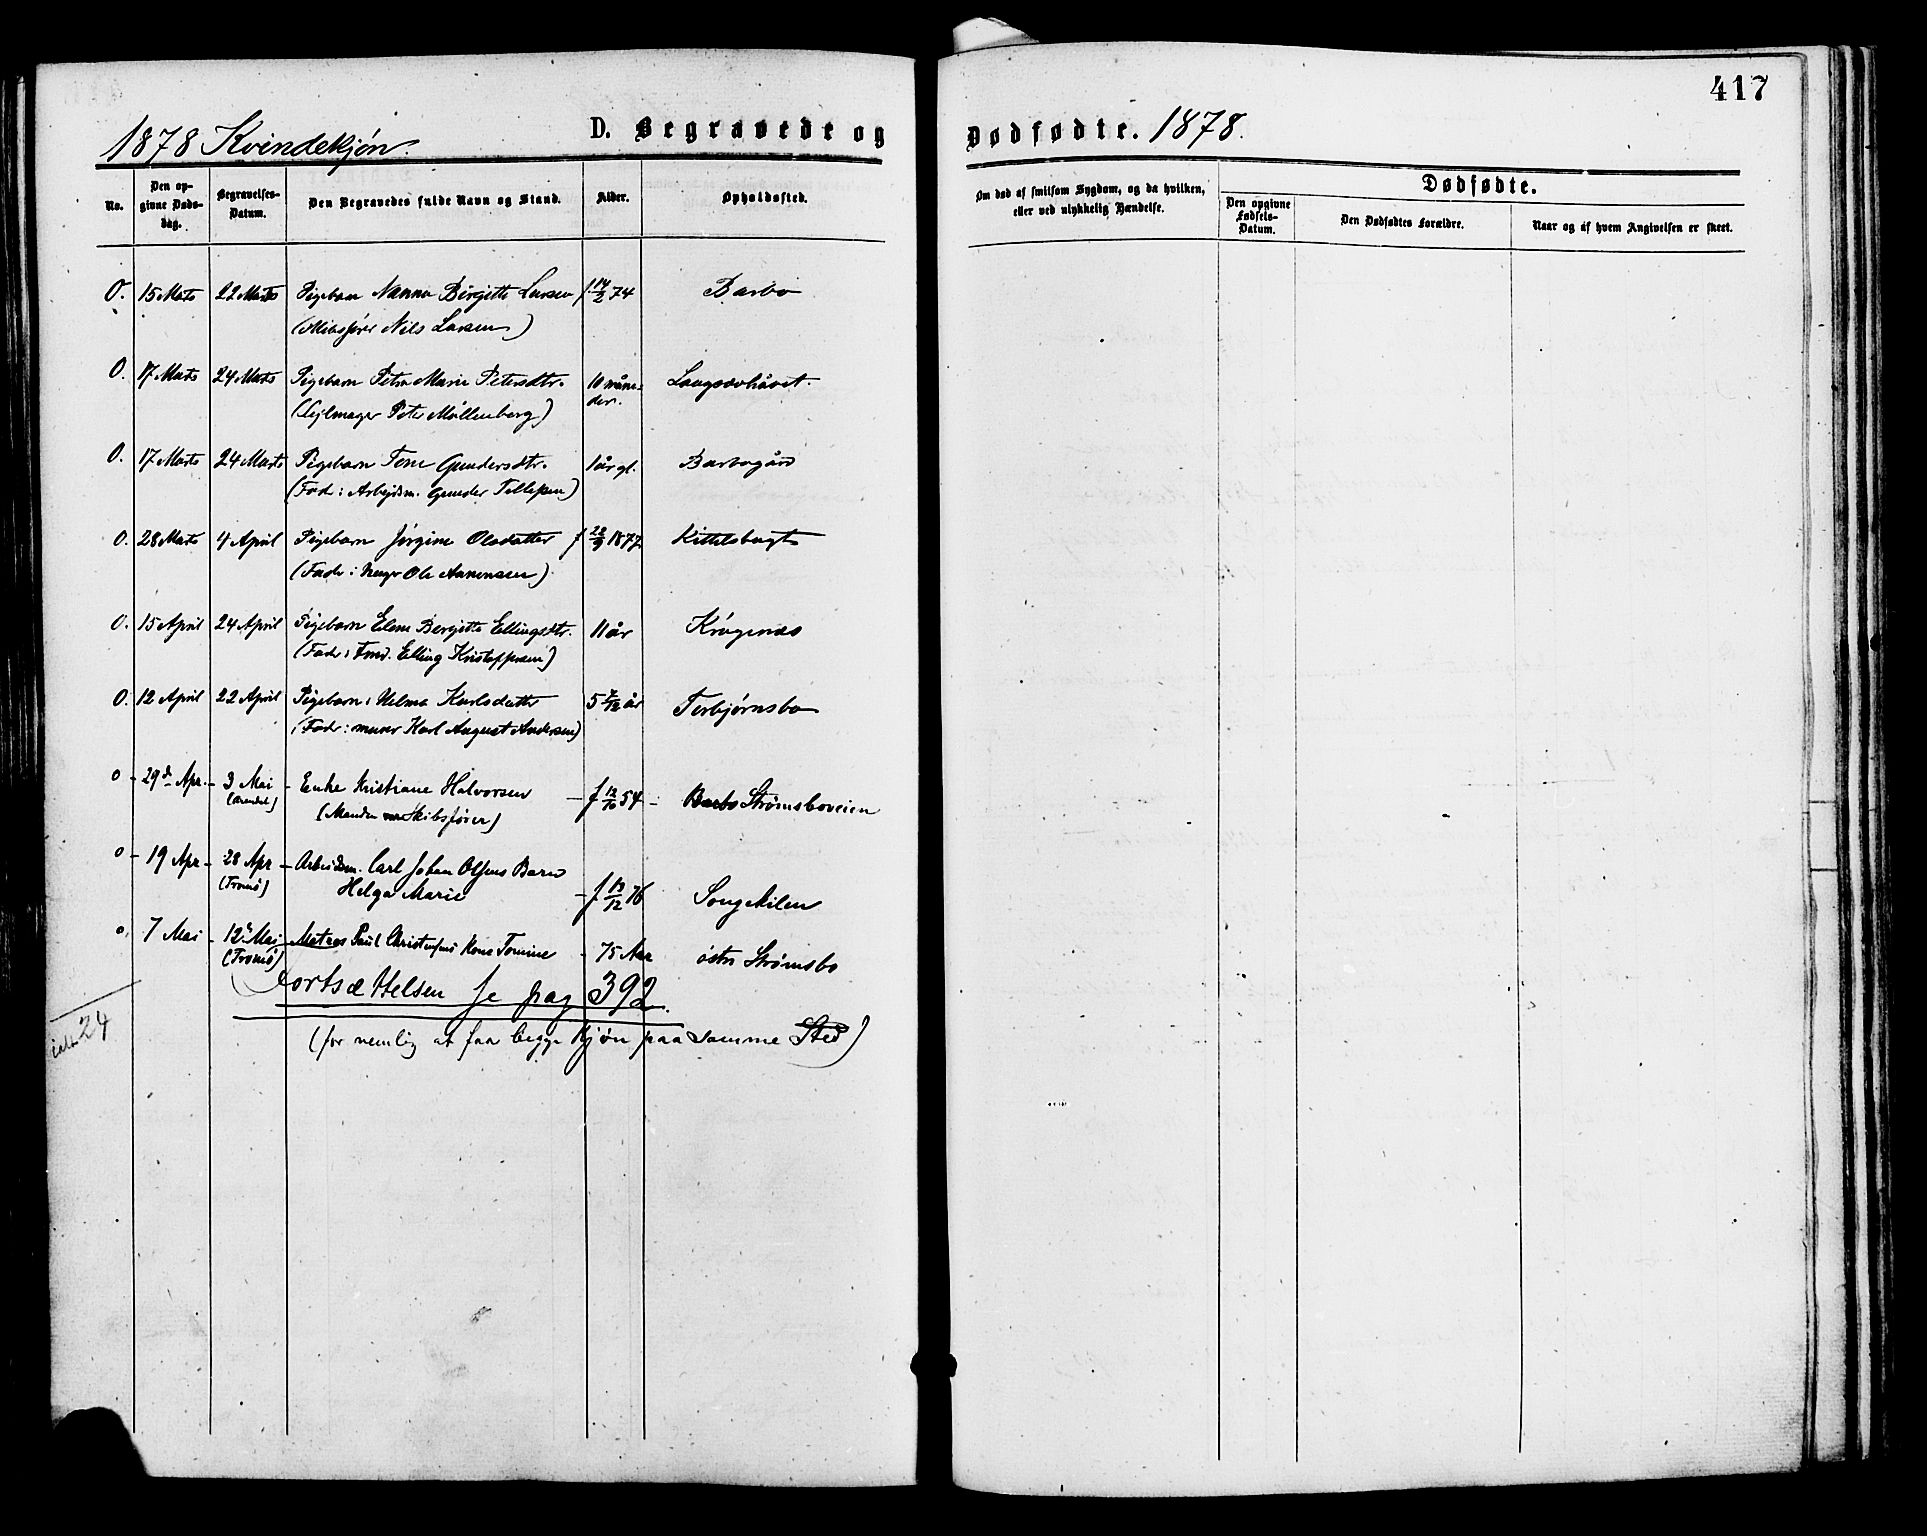 417
1878 Kvindekjøn. D. Begravede og Dødfødte. 1878.
No.
Den opgivne Dødsdag.
Begravelses-Datum.
Den Begravedes fulde Navn og Stand.
Alder.
Opholdssted.
Om død af smitsom Sygdom, og da hvilken, eller ved ulykkelig Hændelse.
Dødfødte.
Den opgivne Fødsels-Datum.
Den Dødfødtes Forældre.
Naar og af hvem Angivelsen er skeet.
0. 15 Marts 22 Marts Pigebarn Nanna Birgitte Larsen f. 14/2 74 Barbo
(Skibsfører Nils Larsen)
0. 17 Marts 24 Marts Pigebarn Petra Marie Petersdtr. 10 måneder. Langsævhåvet.
(Sejlmager Peter Møllenberg)
0. 17 Marts 24 Marts Pigebarn Tone Gundersdtr. 1 år gl. Barbogård
(Fader: Arbejdsm. Gunder Tellefsen)
0. 28 Marts 4 April Pigebarn Jørgine Olsdatter f 22/9 1877 Kittelsbugt
(Fader: Ole Aanensen)
0. 15 April 24 April Pigebarn Elene Bergitte Ellingsdtr. 11 år Krøgenæs
(Fader: Elling Kristoffersen)
0. 12 April 22 April Pigebarn: Helma Karlsdatter 5 7/12 år Torbjørnsbo
(Fader: murer Karl August Andersen)
0 - 29de Apr. - 3 Mai - Enke Kristiane Halvorsen - f 12/10 54 - Barbo Strømsboveien
(Arendal) (Manden var Skibsfører)
0 - 19 Apr - 28 Apr - Arbeidsm. Carl Johan Olsens Barn
(Tromø) Helga Marie - f 13/12 76 Songekilen
0. 7 Mai - 12te Mai Matros Paul Christensens Kone Tomine - 75 Aar østre Strømsbo
(Tromø)
Fortsættelsen se pag 392.
(for nemlig at faa begge Kjøn paa samme Sted)
ialt 24